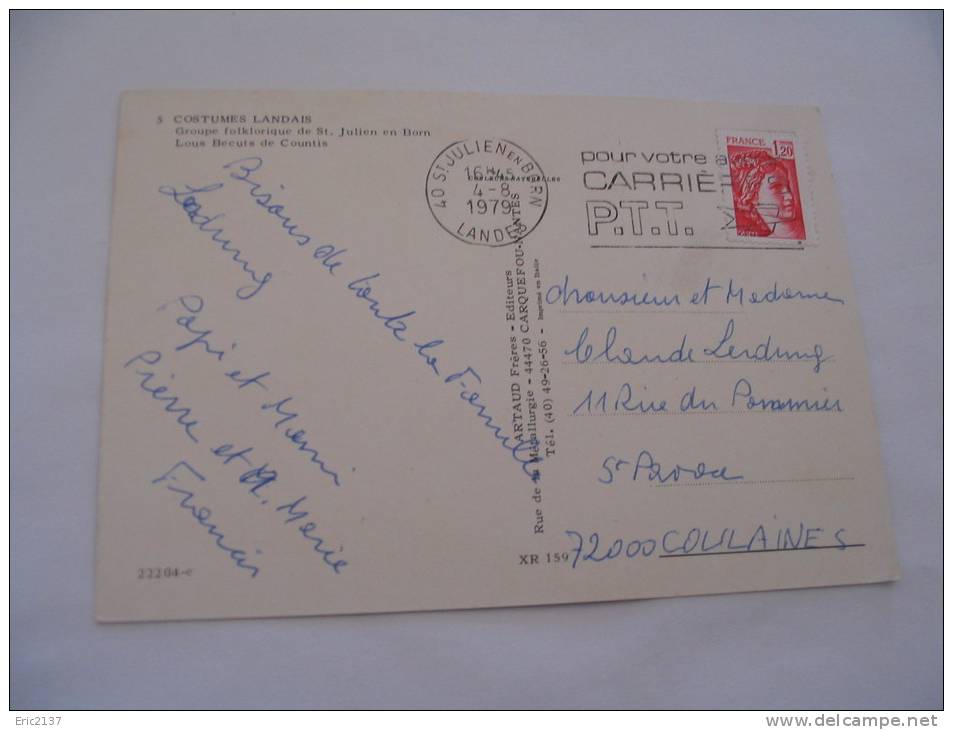 5 COSTUMES LANDAIS
Groupe folklorique de St. Julien en Born
Lous Becuts de Countis
Bisous de toute la Famille
Lerdung
Papi et Mami
Pierre et A. Marie
Francis
22204-c
40 ST JULIEN EN BORN
16H45
4-8
1979
LANDES
pour votre
CARRIÈ
P.T.T.
FRANCE 1,20
ARTAUD Frères - Editeurs
Rue de la Métallurgie - 44470 CARQUEFOU-NANTES
Tél. (40) 49-26-56 - Imprimé en Italie
XR 159
Monsieur et Madame
Claude Lerdung
11 Rue du Pommier
St Pavace
72000 COULAINES
Eric2137
www.delcampe.net